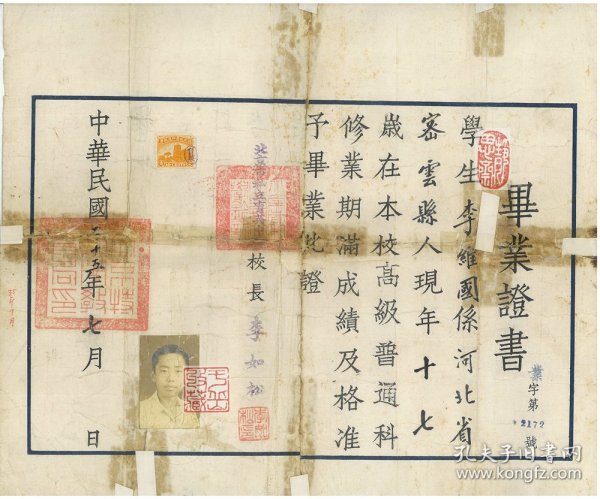 畢業證書
業字第2172號
學生李維國係河北省
密雲縣人現年十七
歲在本校高級普通科
修業期滿成績及格准
予畢業此證
校長李如松
中華民國三十五年七月 日
孔夫子旧书网
www.kongfz.com